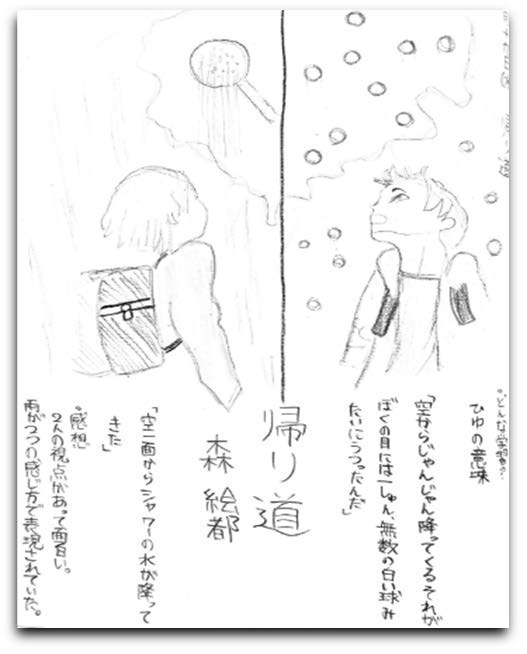 。どんな学習
ひゆの意味
「空からじゃんじゃん降ってくるそれが
ぼくの目には一しゅん、無数の白い球み
たいにうつったんだ」
帰り道
森 絵都
「空一面からシャワーの水が降って
きた」
。感想
2人の視点があって面白い。
雨が2つの感じ方で表現されていた。